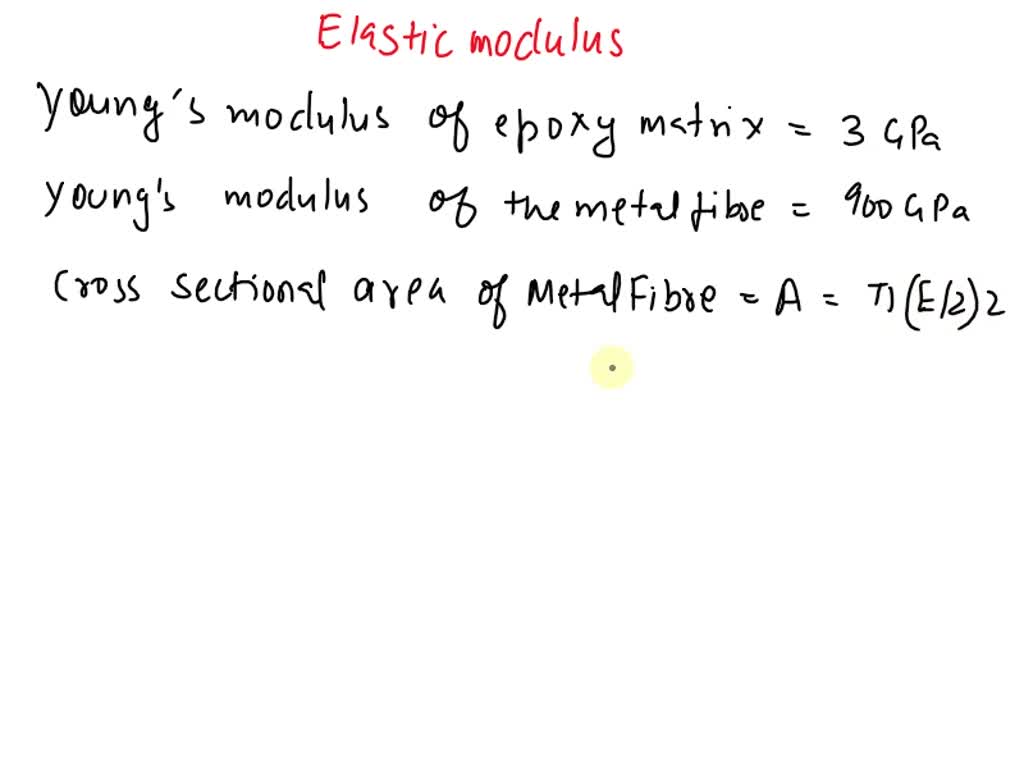 Elastic modulus
Young's modulus of epoxy matrix = 3 GPa
Young's modulus of the metal fibre = 900 GPa
Cross sectional area of Metal Fibre = A = π(E/2)2